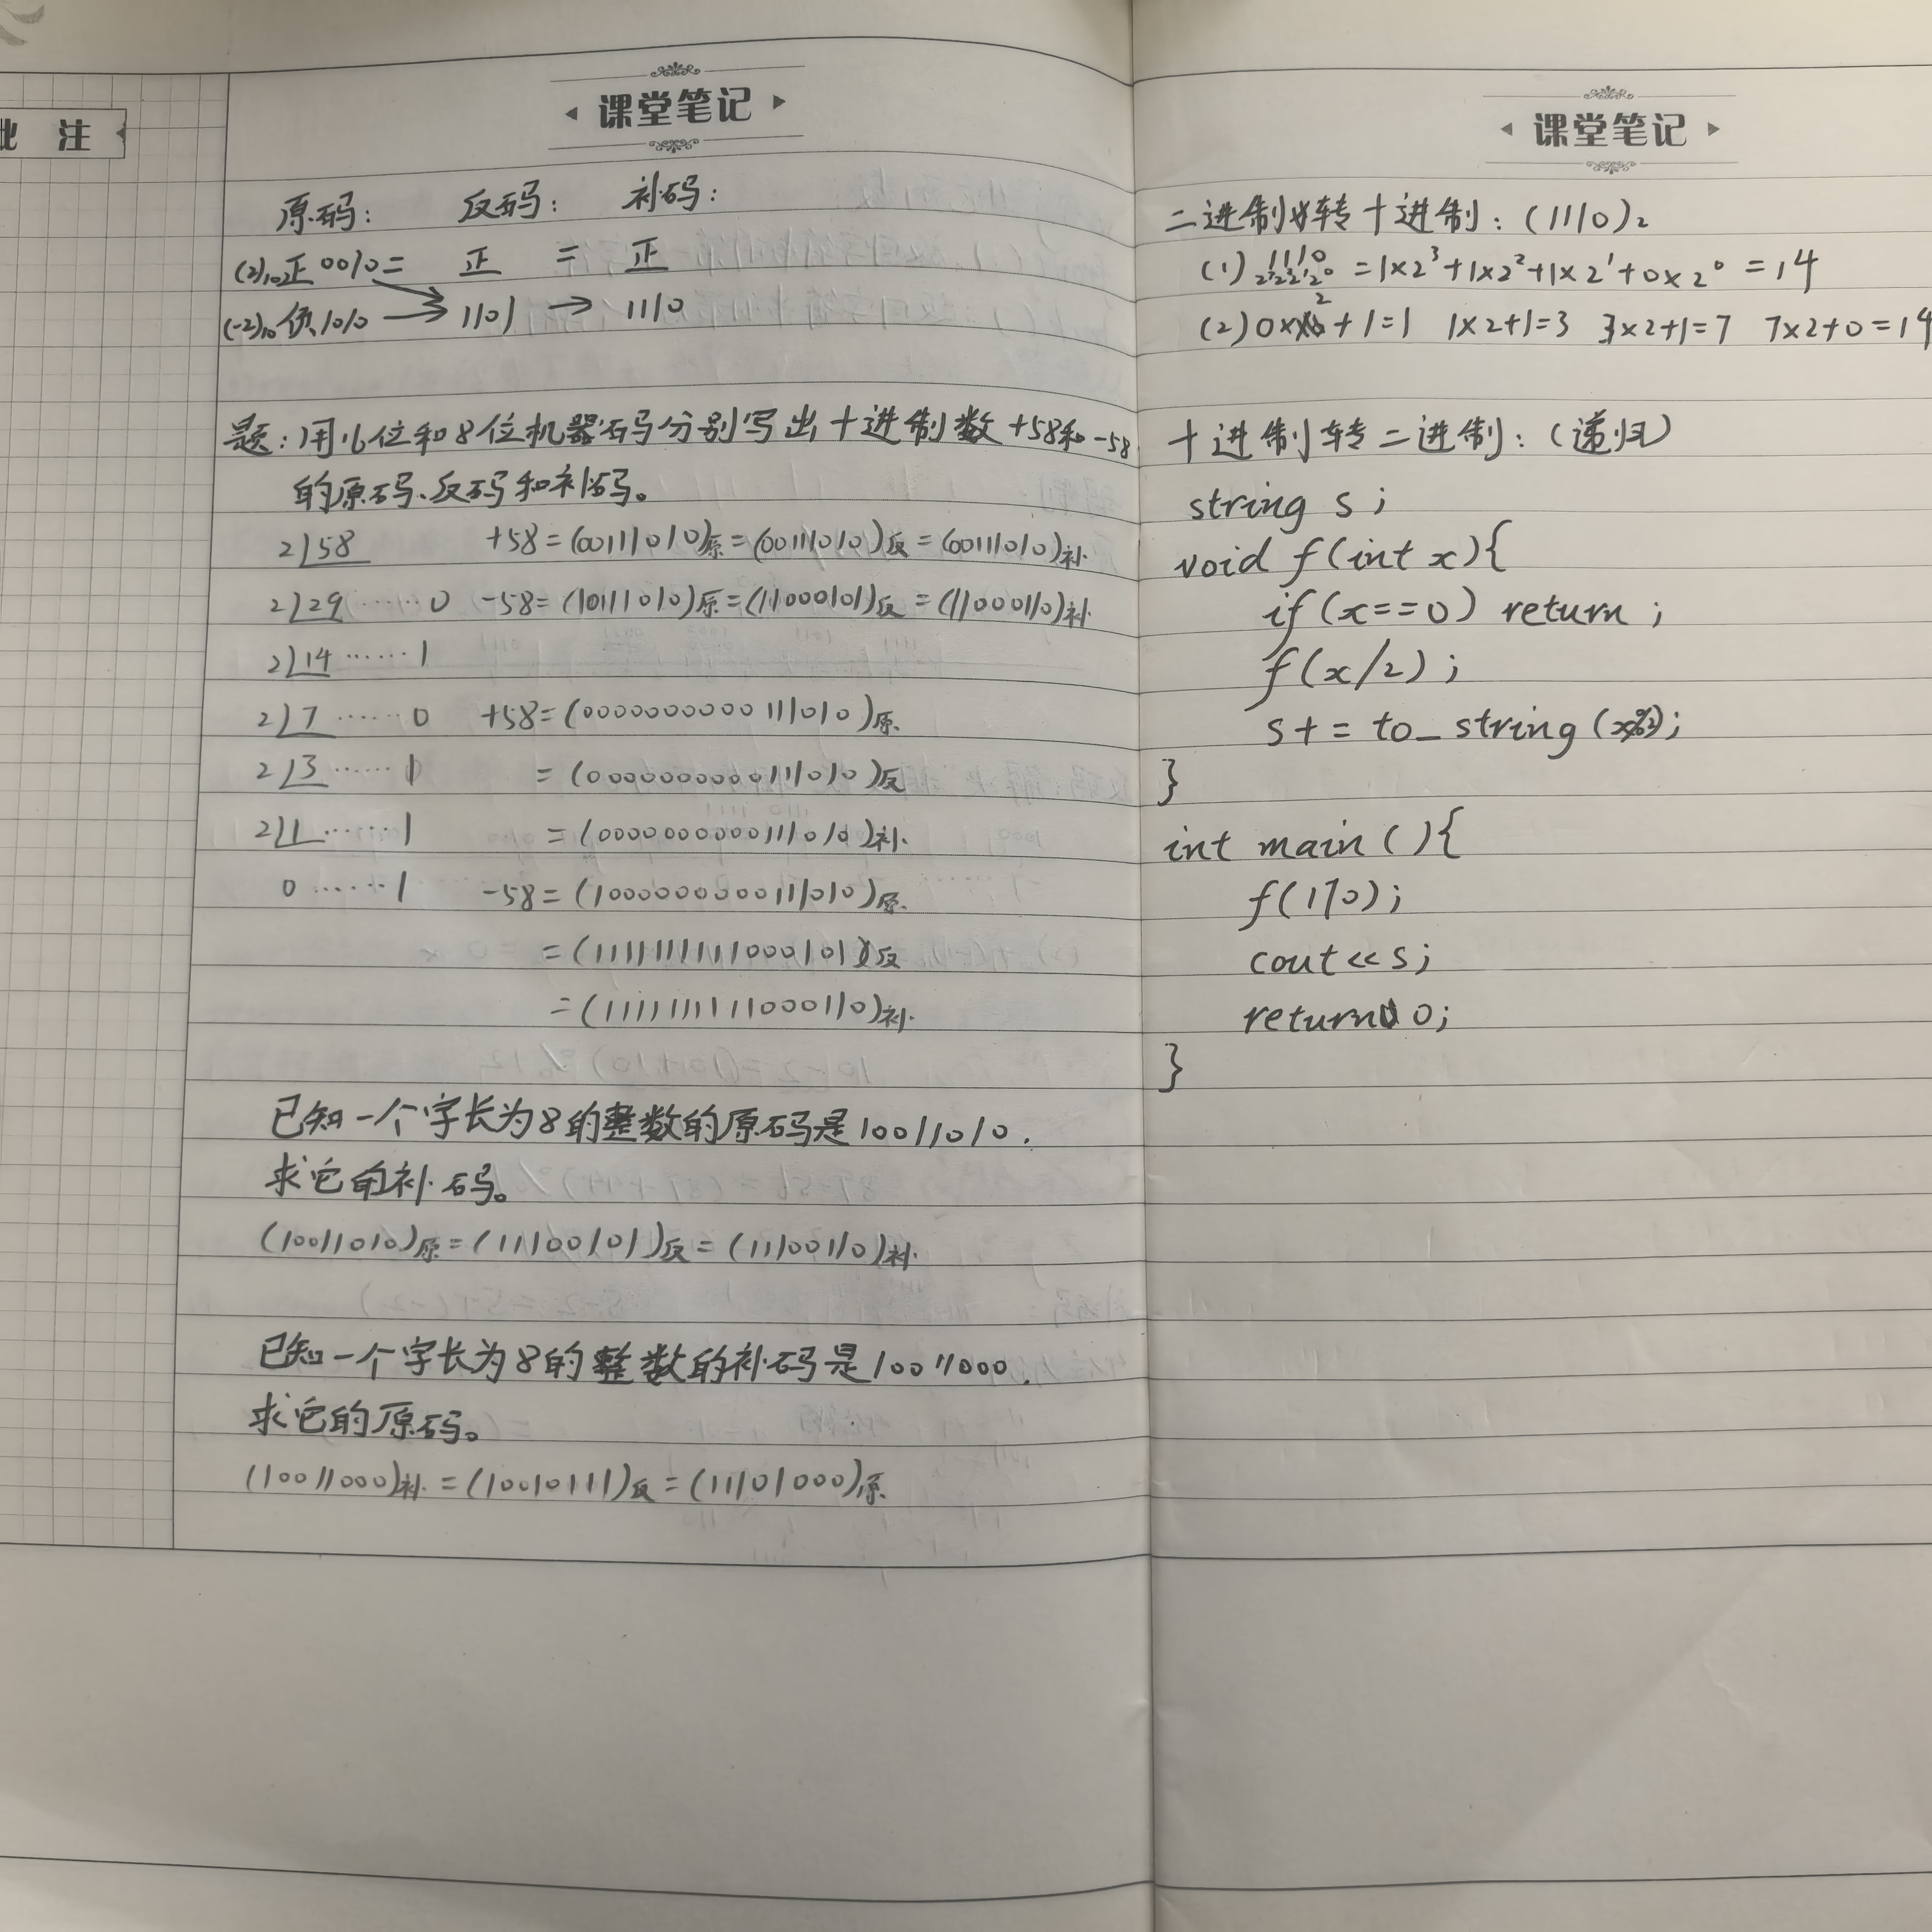 批 注
课堂笔记
原码: 反码: 补码:
(2)₁₀正0010= 正 = 正
(-2)₁₀负1010 → 1101 → 1110
题:用16位和8位机器码分别写出十进制数+58和-58
的原码、反码和补码。
2)58 +58=(00111010)原=(00111010)反=(00111010)补
2)29……0 -58=(10111010)原=(11000101)反=(11000110)补
2)14……1
2)7……0 +58=(0000000000111010)原
2)3……1 =(0000000000111010)反
2)1……1 =(0000000000111010)补
0……1 -58=(1000000000111010)原
=(1111111111000101)反
=(1111111111000110)补
已知一个字长为8的整数的原码是10011010.
求它的补码。
(10011010)原=(11100101)反=(11100110)补
已知一个字长为8的整数的补码是10011000.
求它的原码。
(10011000)补=(10010111)反=(11101000)原
课堂笔记
二进制转十进制:(1110)₂
(1) 1110 = 1×2³+1×2²+1×2¹+0×2⁰ = 14
2³2²2¹2⁰
(2) 0×2+1=1 1×2+1=3 3×2+1=7 7×2+0=14
十进制转二进制:(递归)
string s;
void f(int x){
if(x==0) return;
f(x/2);
s+=to_string(x%2);
}
int main(){
f(170);
cout<<s;
return 0;
}